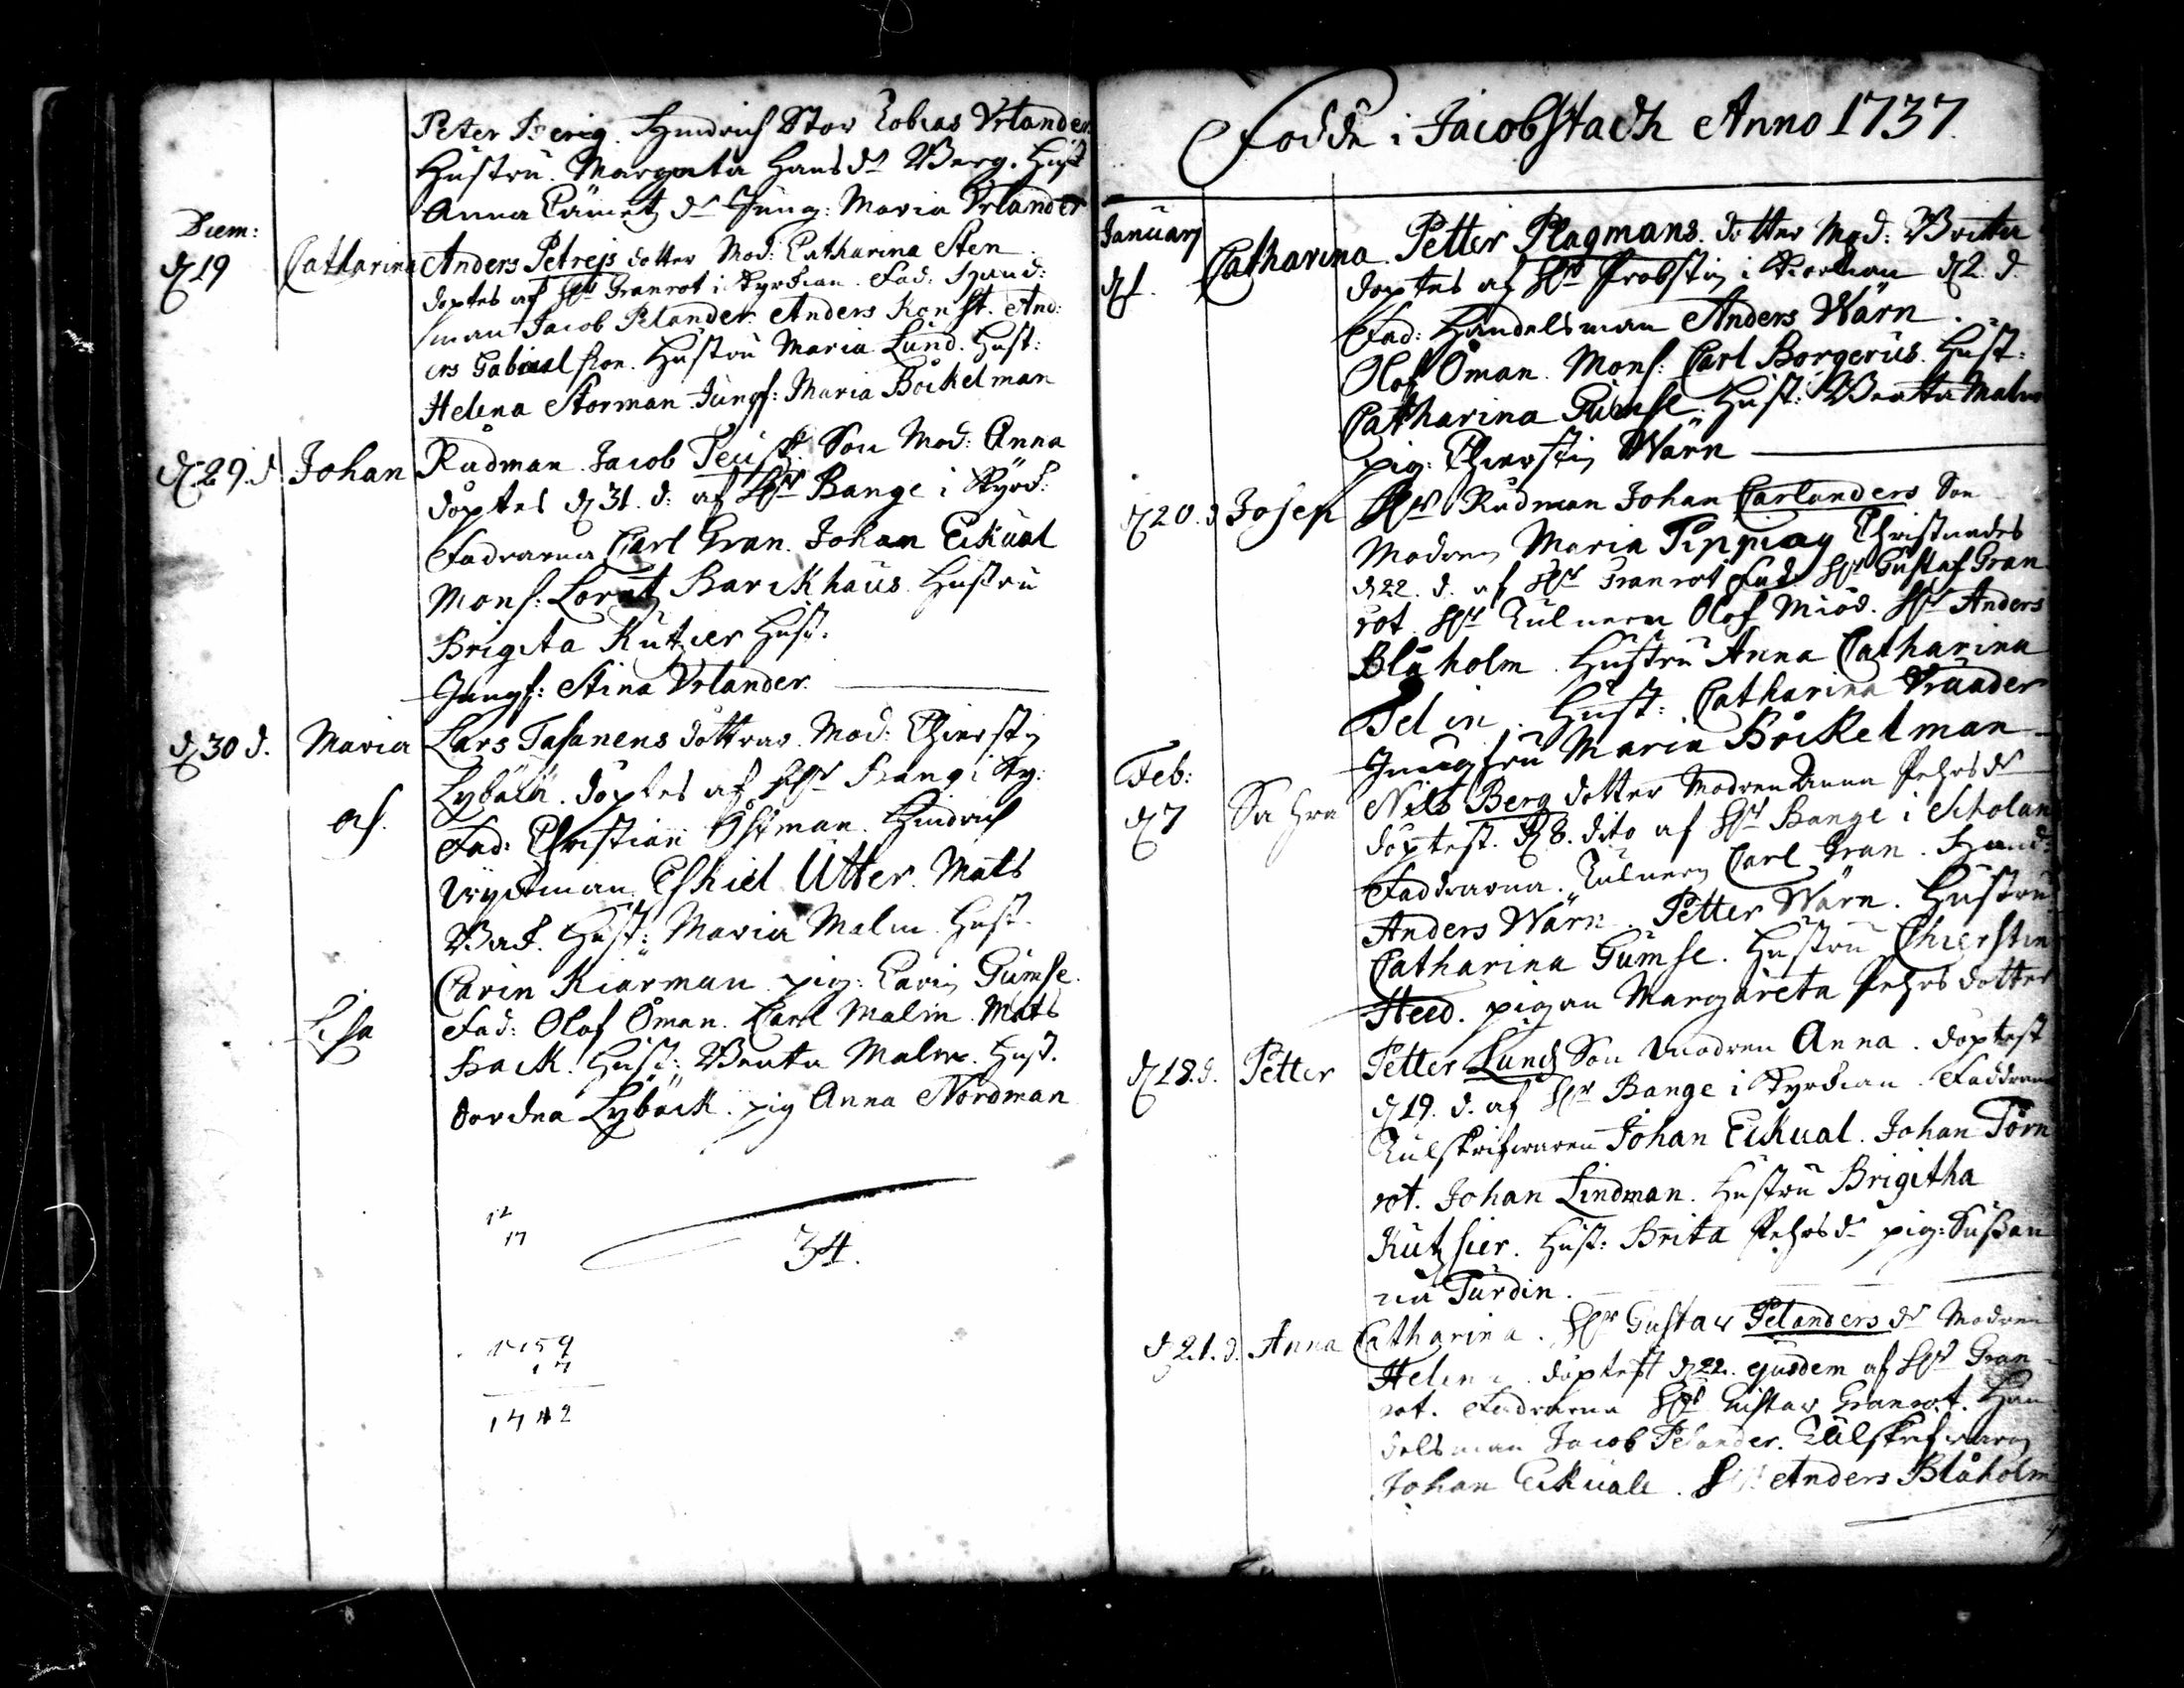 Peter Berig. Hindrich Stor Tobias Urlander
Hustru. Margeta Hansdr Berg. Hust
Anna dr Jung: Maria Urlander
Diem:
d 19 Catharina Anders Petrejs dotter Mod: Catharina Sten
döptes af Hr Granrot i Kyrkian. Fad: Hand:
man Jacob Pelander. Anders Konst. And:
ers Gabriel son. Hustru Maria Lund. Hust:
Helena Storman Jungf: Maria Böckelman
d 29. d Johan Rådman. Jacob Son Mod: Anna
döptes d 31. d: af Hr Bange i Kyrk:
Fadrarna Carl Gran. Johan Eckual
Mons: Lorentz Barckhaus. Hustru
Brigita Kutzier Hust.
Jungf: Stina Urlander.
d 30 d. Maria Lars Tasanens döttrar. Mod: Chierstin
Lyback. döptes af Hr Bang i Ky:
och. Fad: Christian Östman. Hindrich
Wijckman. Eskiel Utter. Mats
Back. Hust: Maria Malm. Hust.
Carin Kiarman. pig: Carin Gumse.
Lisa Fad: Olof Öman. Carl Malin. Mats
Back. Hust: Beata Malm. Hust.
Dordea Lyback. pig Anna Nordman
12
17
34.
1759
17
1742
Födde i Jacobstadh Anno 1737.
Januarij
d 1. Catharina Petter Plagmans. dotter Mod: Britta
döptes af Hr Probstin i Kiorkian d 2. d.
Fad: Handelsman Anders Wärn.
Olof Öman. Mons: Carl Borgerus. Hust:
Catharina Gumse. Hust: Beata Malm
pig: Chierstin Wärn
d 20. d Josep Hr Rådman Johan Carlanders Son
Modren Maria Pippiay Christnades
d 22. d. af Hr Granrot Fad: Hr Gustaf Gran
rot. Hr Tulnern Olof Miöd. Hr Anders
Blåholm. Hustru Anna Catharina
Selin. Hust: Catharina
Jungfru Maria Böckelman
Feb:
d 7 Sahra Nils Berg dotter Modren Anna Pehrsdr
döptest. d 8. dito af Hr Bange i Scholan
Faddrarna. Tulnern Carl Gran. Hand:
Anders Wärn. Petter Wärn. Hustru
Catharina Gumse. Hustru Chierstin
Heed. pigan Margareta Pehrs dotter
d 18. d. Petter Petter Lunds Son Modren Anna. döptest
d 19. d. af Hr Bange i Kyrkian. Faddrarna
Tulskrifwaren Johan Eckual. Johan Törn
rot. Johan Lindman. Hustru Brigitha
Kutzsier. Hust: Brita Pehrsdr pig: Sussan
na Turdin.
d 21. d. Anna Catharina. Hr Gustav Pelanders dr Modren
Helena. döptest d 22. ejusdem af Hr Gran
rot. Fadrarna Hr Gustav Granrot. Han
delsman Jacob Pelander. Tulskrifwaren
Johan Eckuale. Hr Anders Blåholm